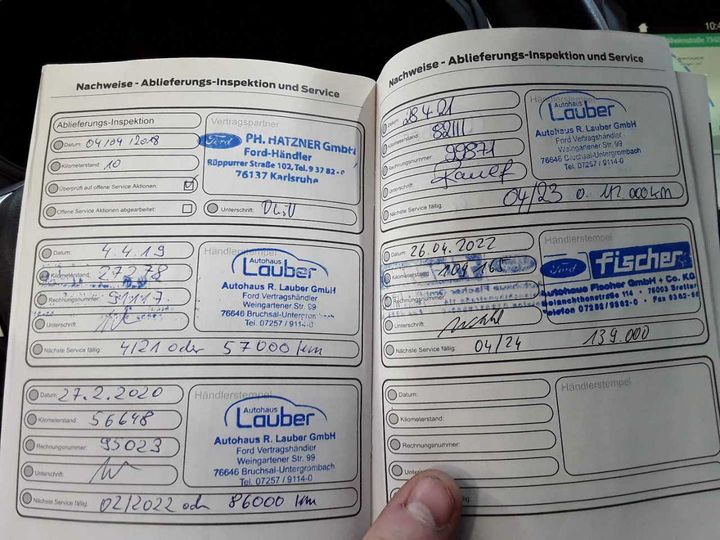 Nachweise - Ablieferungs-Inspektion und Service
Ablieferungs-Inspektion
Datum: 04/04/2018
Kilometerstand: 10
Überprüft auf offene Service Aktionen:
Offene Service Aktionen abgearbeitet:
Vertragspartner
Ford PH. HATZNER GmbH
Ford-Händler
Rüppurrer Straße 102, Tel. 9 37 82-0
76137 Karlsruhe
Unterschrift:
Datum: 4.4.19
Kilometerstand: 27278
Rechnungsnummer: 91117
Unterschrift:
Nächste Service fällig: 4/21 oder 57000 km
Händlerstempel
Autohaus
Lauber
Autohaus R. Lauber GmbH
Ford Vertragshändler
Weingartener Str. 99
76646 Bruchsal-Untergrombach
Tel. 07257 / 9114-0
Datum: 27.2.2020
Kilometerstand: 56648
Rechnungsnummer: 95023
Unterschrift:
Nächste Service fällig: 02/2022 oder 86000 km
Händlerstempel
Autohaus
Lauber
Autohaus R. Lauber GmbH
Ford Vertragshändler
Weingartener Str. 99
76646 Bruchsal-Untergrombach
Tel. 07257 / 9114-0
Nachweise - Ablieferungs-Inspektion und Service
Datum: 28.4.21
Kilometerstand: 82111
Rechnungsnummer: 99871
Unterschrift:
Nächste Service fällig: 04/23 o. 112.000km
Händlerstempel
Autohaus
Lauber
Autohaus R. Lauber GmbH
Ford Vertragshändler
Weingartener Str. 99
76646 Bruchsal-Untergrombach
Tel. 07257 / 9114-0
Datum: 26.04.2022
Kilometerstand: 109165
Rechnungsnummer:
Unterschrift:
Nächste Service fällig: 04/24 139.000
Händlerstempel
Ford fischer
Autohaus Fischer GmbH + Co. KG
Melanchthonstraße 114 · 75003 Bretten
Telefon 07252/9582-0 · Fax
Datum:
Kilometerstand:
Rechnungsnummer:
Händlerstempel
10:4